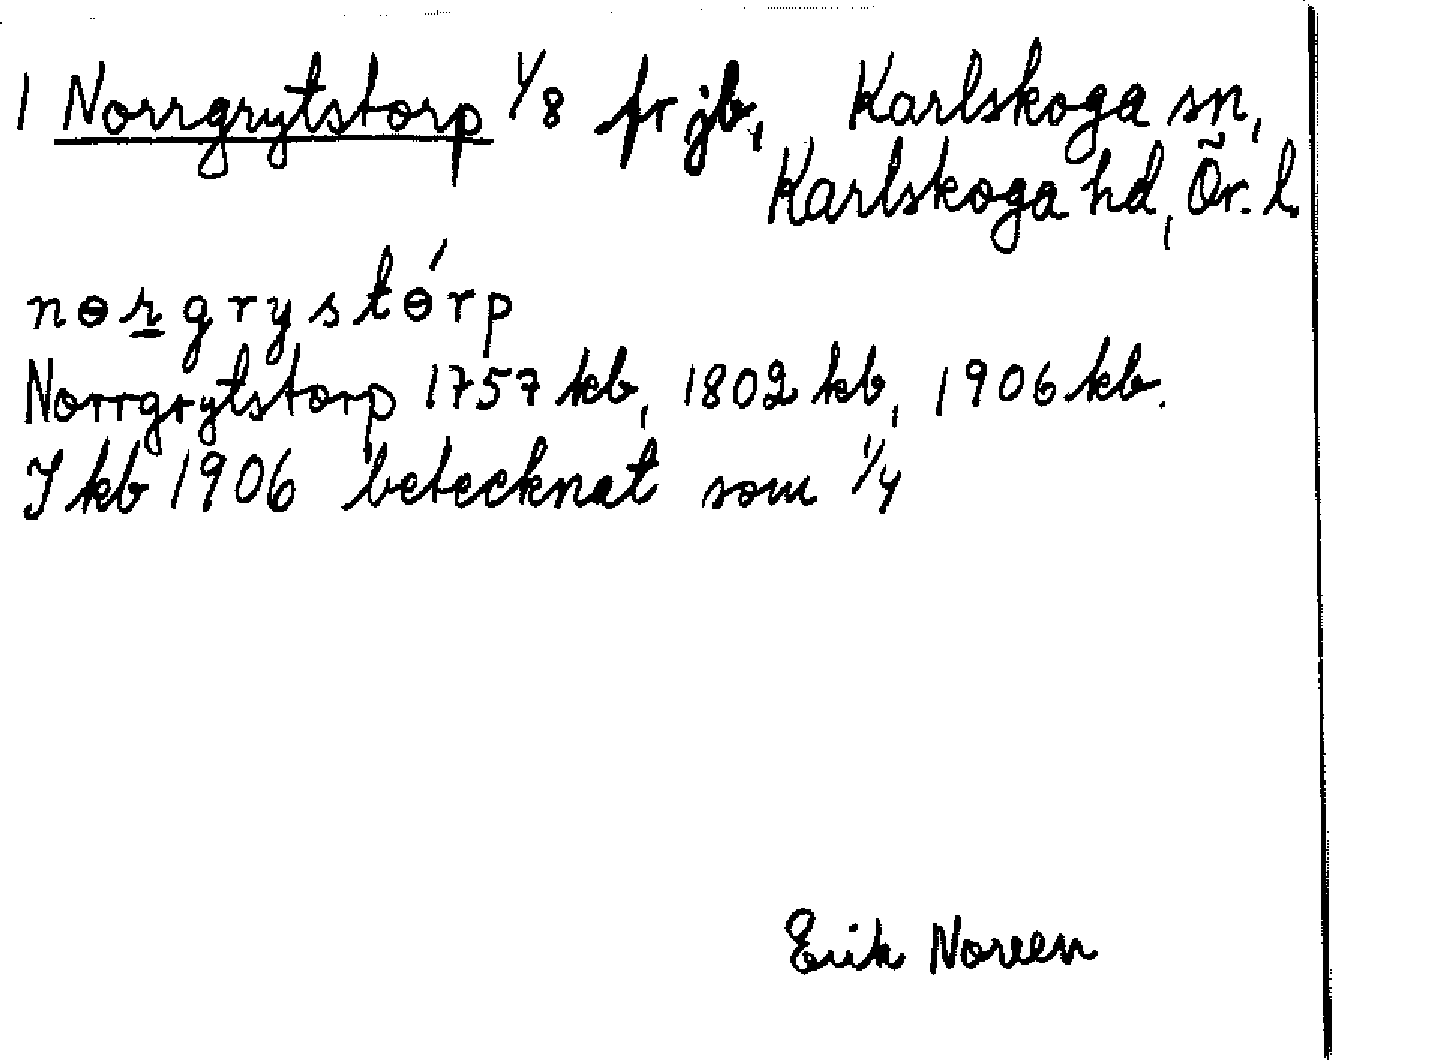 1 Norrgrytstorp 1/8 fr jb, Karlskoga sn,
Karlskoga hd, Ör. l.
nɵrgrystɵ́rp
Norrgrytstorp 1757 kb, 1802 kb, 1906 kb.
I kb 1906 betecknat som 1/4
Erik Noreen